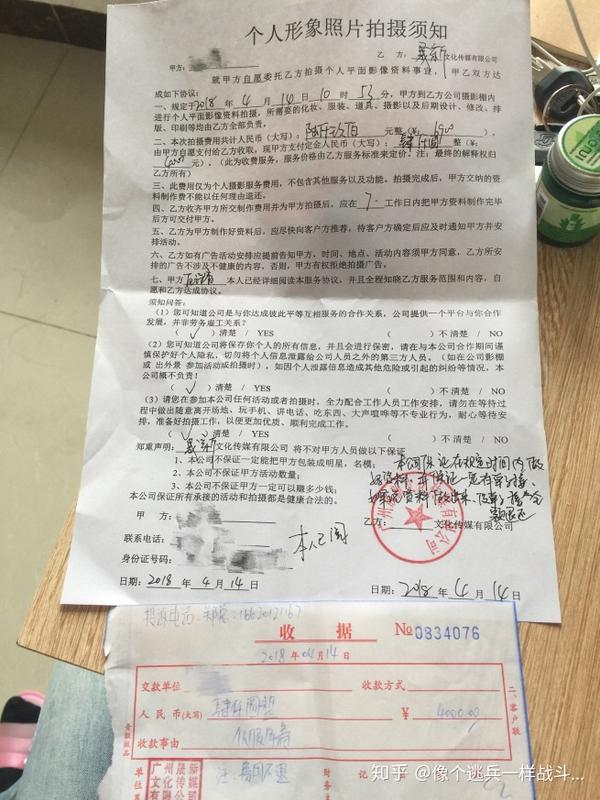 个人形象照片拍摄须知
甲方：
乙 方：
文化传媒有限公司
就甲方自愿委托乙方拍摄个人平面影像资料事宜，甲乙双方达
成如下协议：
一、规定于2018 年 4 月 14 日 10 时 53分，甲方到乙方公司摄影棚内
进行个人平面影像资料拍摄，所需要的化妆、服装、道具、摄影以及后期设计、修改、排
版、印刷等均由乙方全部负责。
二、本次拍摄费用共计人民币（大写）： 元整（￥： ）。
由甲方自愿支付给乙方收取，现甲方支付定金人民币（大写）： 整（￥：
元）。（此为收费服务，服务价格由乙方服务标准来定价。注：最终的解释权归
乙方所有）
三、此费用仅为个人摄影服务费用，不包含其他服务以及功能。拍摄完成后，甲方交纳的资
料制作费不能以任何理由退还。
四、乙方收齐甲方所交制作费用并为甲方拍摄后，应在 7 工作日内把甲方资料制作完毕
后方可交付甲方。
五、乙方为甲方制作好资料后，应尽快向客户方推荐，待客户方确定后应及时通知甲方并安
排活动。
六、乙方如有广告活动安排应提前告知甲方，时间、地点、活动内容须甲方同意，乙方所安
排的广告不涉及不健康的内容，否则，甲方有权拒绝拍摄广告。
七、甲方 本人已经详细阅读本服务协议，并且全程知晓乙方服务范围和内容，自
愿和乙方达成协议。
须知问答：
（1）您可知道公司是与你达成彼此平等互相服务的合作关系，公司提供一个平台与你合作
发展，并非劳务雇工关系？
（ √ ）清楚 / YES （ ）不清楚 / NO
（2）您可知道公司将保存你个人的所有信息，并且会进行保密，请在与本公司合作期间谨
慎保护好个人隐私，切勿将个人信息泄露给公司人员之外的第三方人员，（如在公司影棚
或 出外景 参加活动或拍摄时），如因个人泄露信息造成其他危险或引起的纠纷等情况，本
公司概不负责！
（ √ ）清楚 / YES （ ）不清楚 / NO
（3）请您在参加本公司任何活动或者拍摄时，全力配合工作人员工作安排，请勿在等待过
程中做出随意离开场地、玩手机、讲电话、吃东西、大声喧哗等不专业行为，耐心等待安
排，准备好拍摄工作，以便更加优质、顺利完成工作。
（ √ ）清楚 / YES （ ）不清楚 / NO
郑重声明： 文化传媒有限公司 将不对甲方人员做以下保证
1、本公司不保证一定能把甲方包装成明星，名模；
2、本公司不保证甲方活动数量；
3、本公司不保证甲方一定可以赚多少钱；
本公司保证所有承接的活动和拍摄都是健康合法的。
本公司保证在规定时间内做
好资料，并保证一定有单子接，
全额退还
甲 方：
乙方： 文化传媒有限公司
联系电话：
本人已阅
身份证号码：
日期：2018 年 4 月 14 日
日期：2018 年 4 月 14 日
收 据
№0834076
2018 年 04 月 14 日
交款单位
收款方式
人 民 币(大写)
￥ 4000.00
收款事由 仪服务费
二、客户联
知乎 @像个逃兵一样战斗...